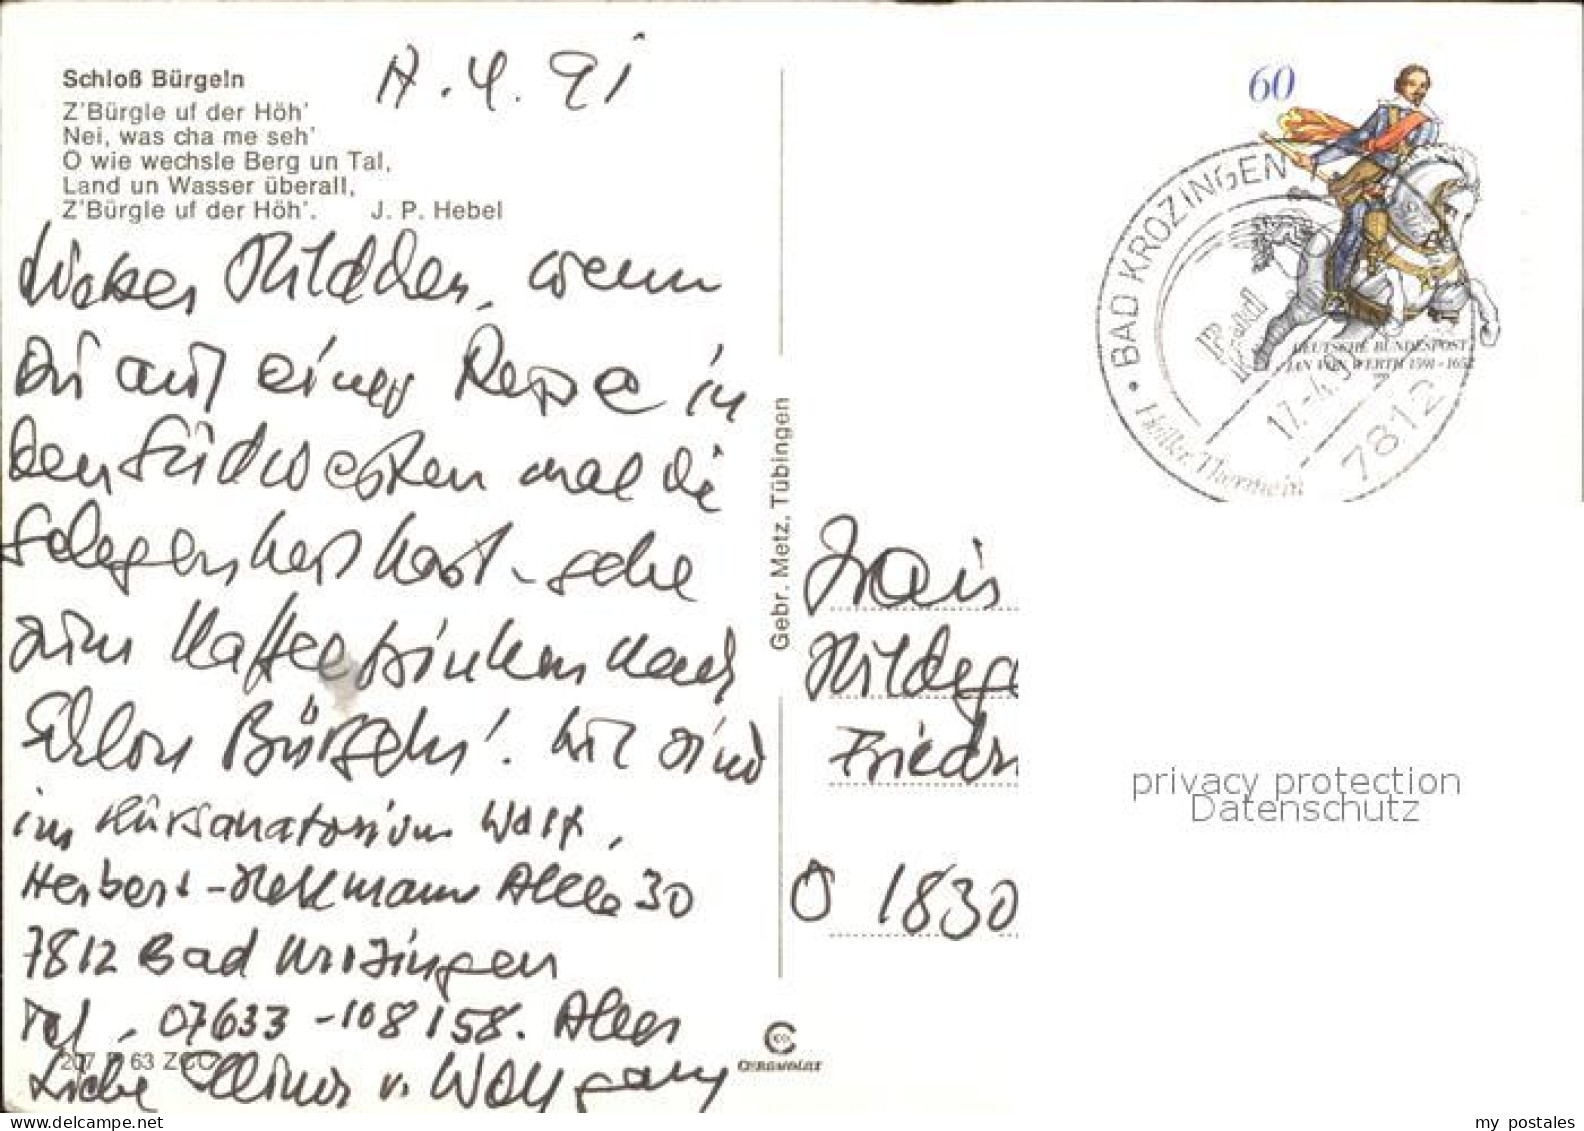 Schloß Bürgeln
17.4.91
Z'Bürgle uf der Höh'
Nei, was cha me seh'
O wie wechsle Berg un Tal,
Land un Wasser überall,
Z'Bürgle uf der Höh'. J. P. Hebel
Liebes Hildchen, wenn
Du auf einer Reise in
den Südwesten mal die
Gelegenheit hast - gehe
zum Kaffeetrinken nach
Schloss Bürgeln! Wir sind
im Kursanatorium Wolf,
Herbert-Hellmann Allee 30
7812 Bad Krozingen
Tel. 07633-108158. Alles
Liebe v. Wolfgang
207 63 ZCC
Gebr. Metz, Tübingen
CERAMOLAR
60
DEUTSCHE BUNDESPOST
JAN VON WERTH 1591-1652
BAD KROZINGEN 1
17.-4.
7812
Frau
Hildeg
Friedr
O 1830
privacy protection
Datenschutz
my postales